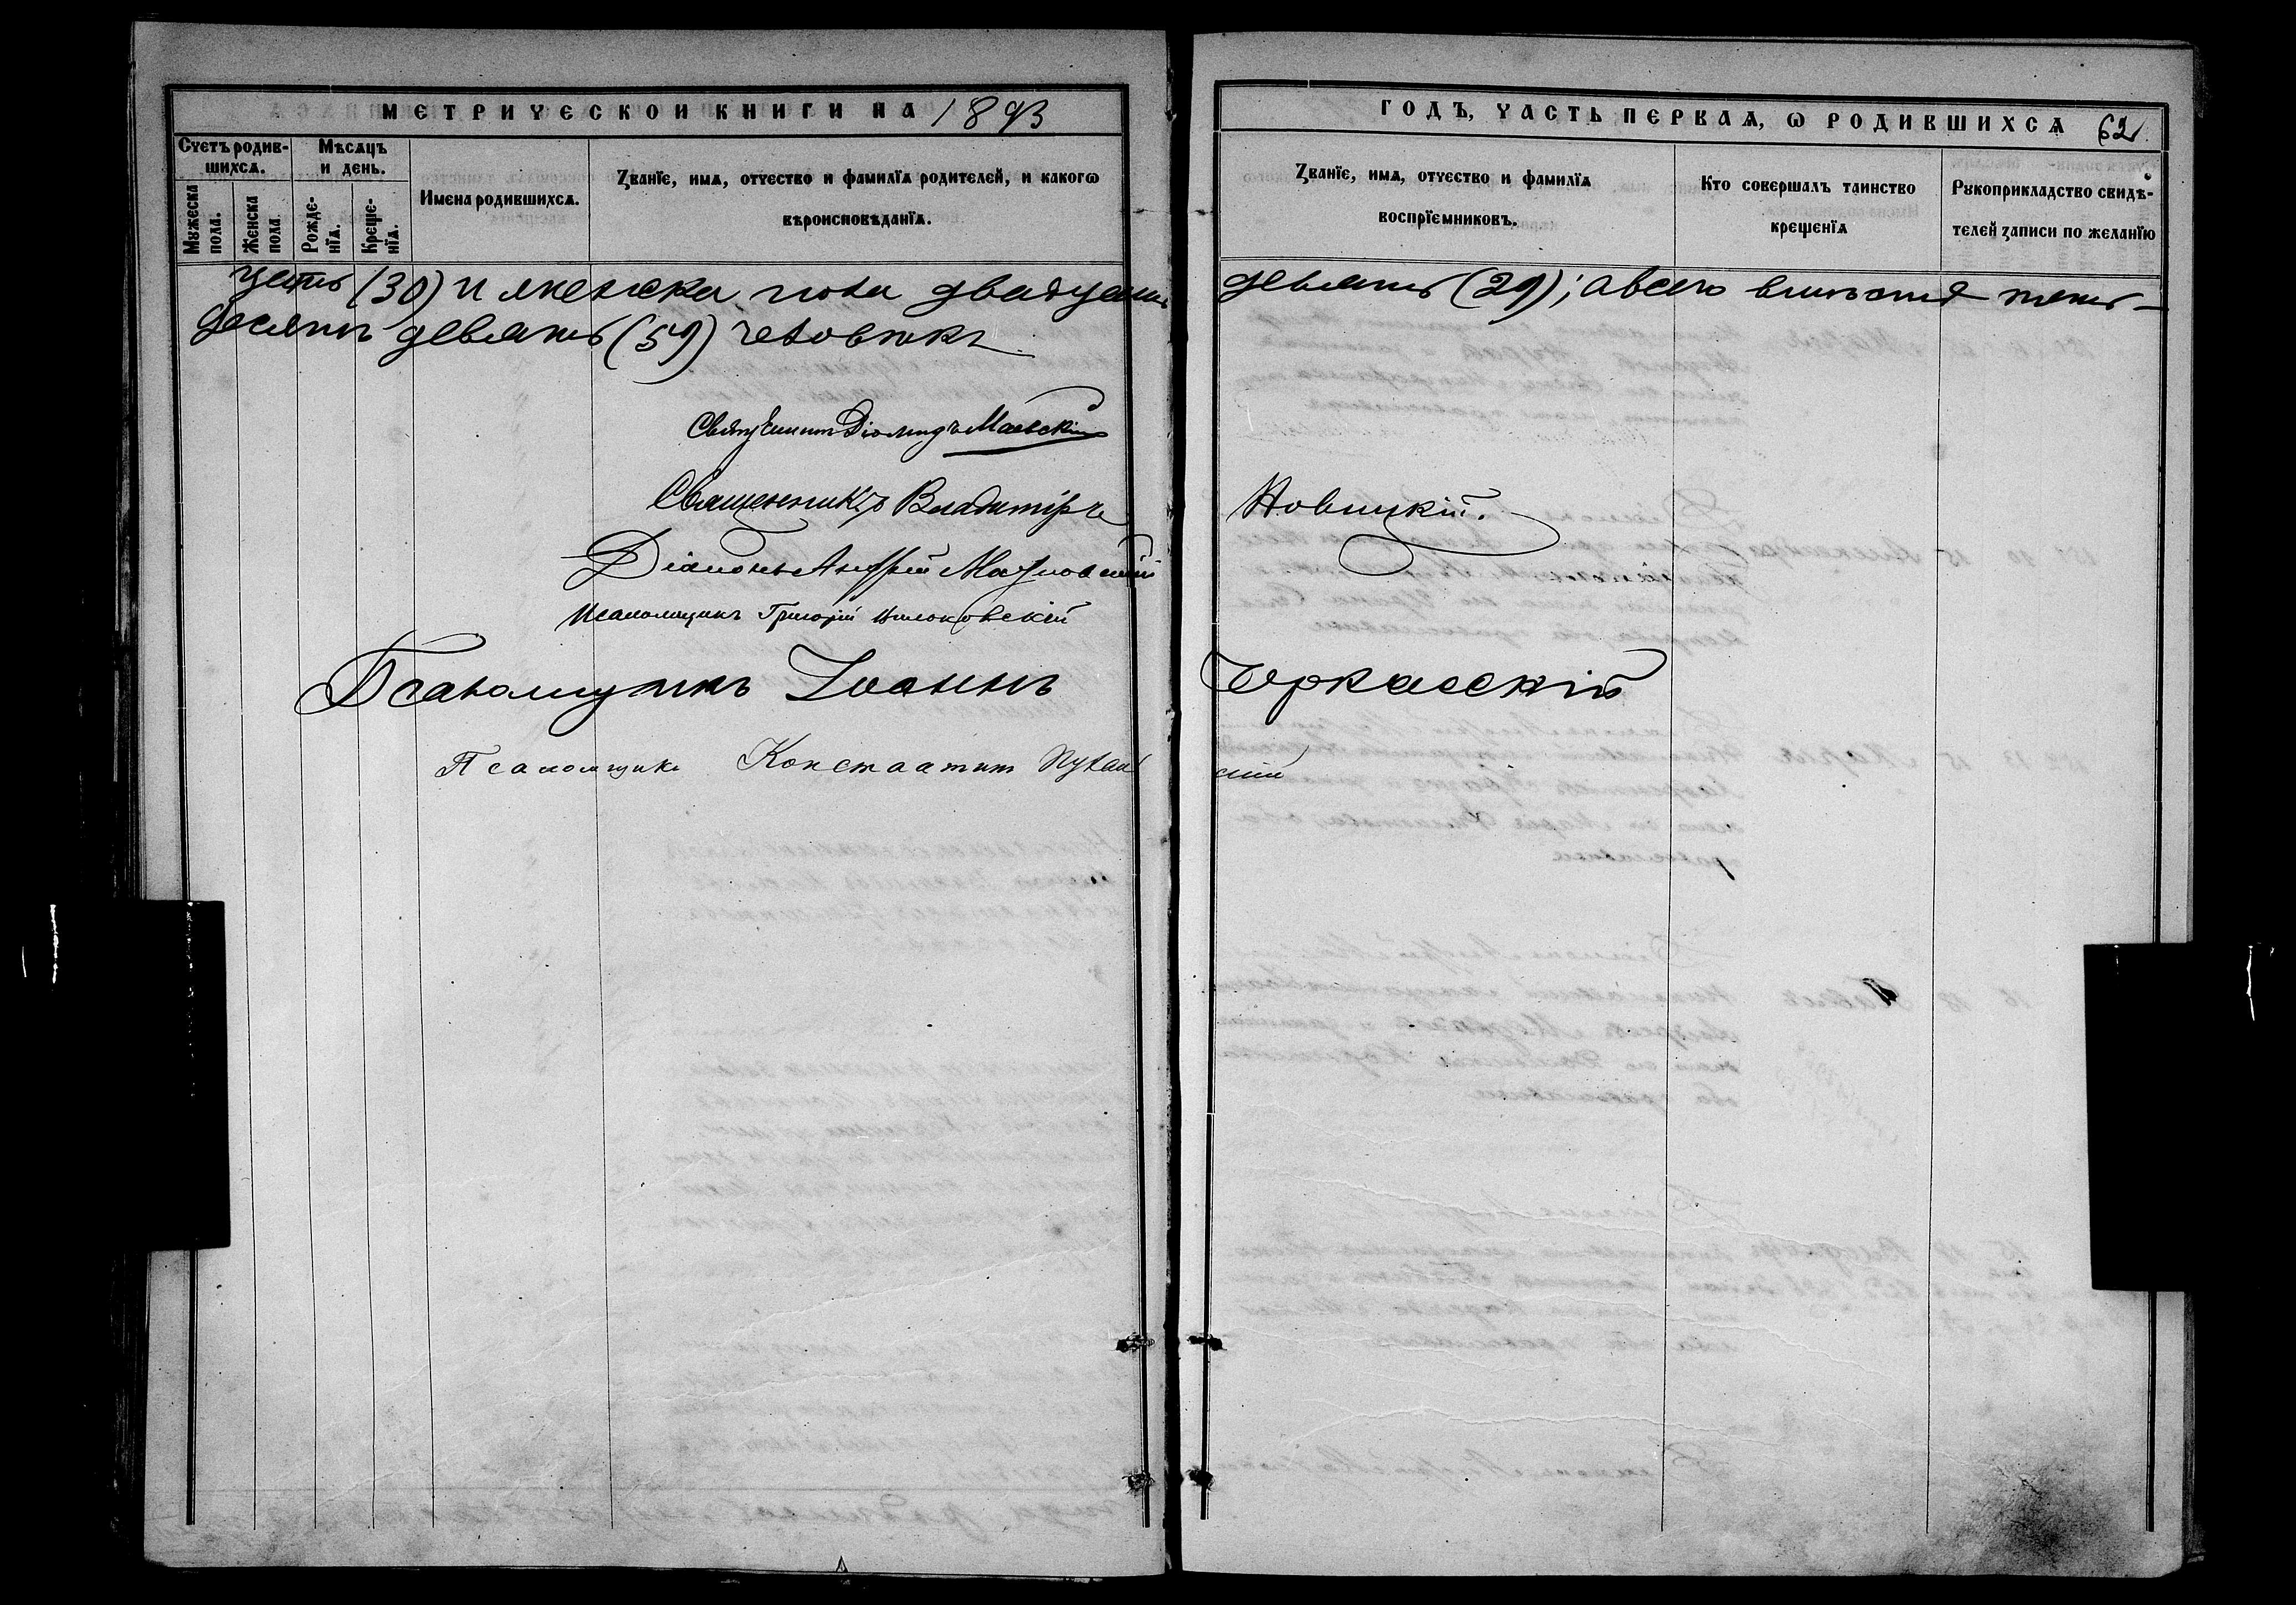 МЕТРИЧЕСКОЙ КНИГИ НА 1893
ГОДЪ, ЧАСТЬ ПЕРВАѦ, Ѡ РОДИВШИХСѦ 62
Счетъ родив-
шихсѧ.
Мѣсѧцъ
и день.
Мꙋжеска
пола.
Женска
пола
Рожде-
нїѧ.
Креще-
нїѧ.
Имена родившихсѧ.
Званїе, имѧ, отчество и фамилїѧ родителей, и какогѡ
вѣроисповѣданїѧ.
Званїе, имѧ, отчество и фамилїѧ
воспрїемниковъ.
Кто совершалъ таинство
крещенїѧ
Рꙋкоприкладство свидѣ-
телей записи по желанїю
цать (30) и женска пола двадцать девять (29); а всего вмѣстѣ пять-
десятъ девять (59) человѣкъ
Священникъ Діомидъ Маевскій
Священникъ Владиміръ Новицкій.
Діаконъ Андрей
Псаломщикъ Григорій
Псаломщикъ Іоаннъ Черкасскій
Псаломщикъ Констаатин